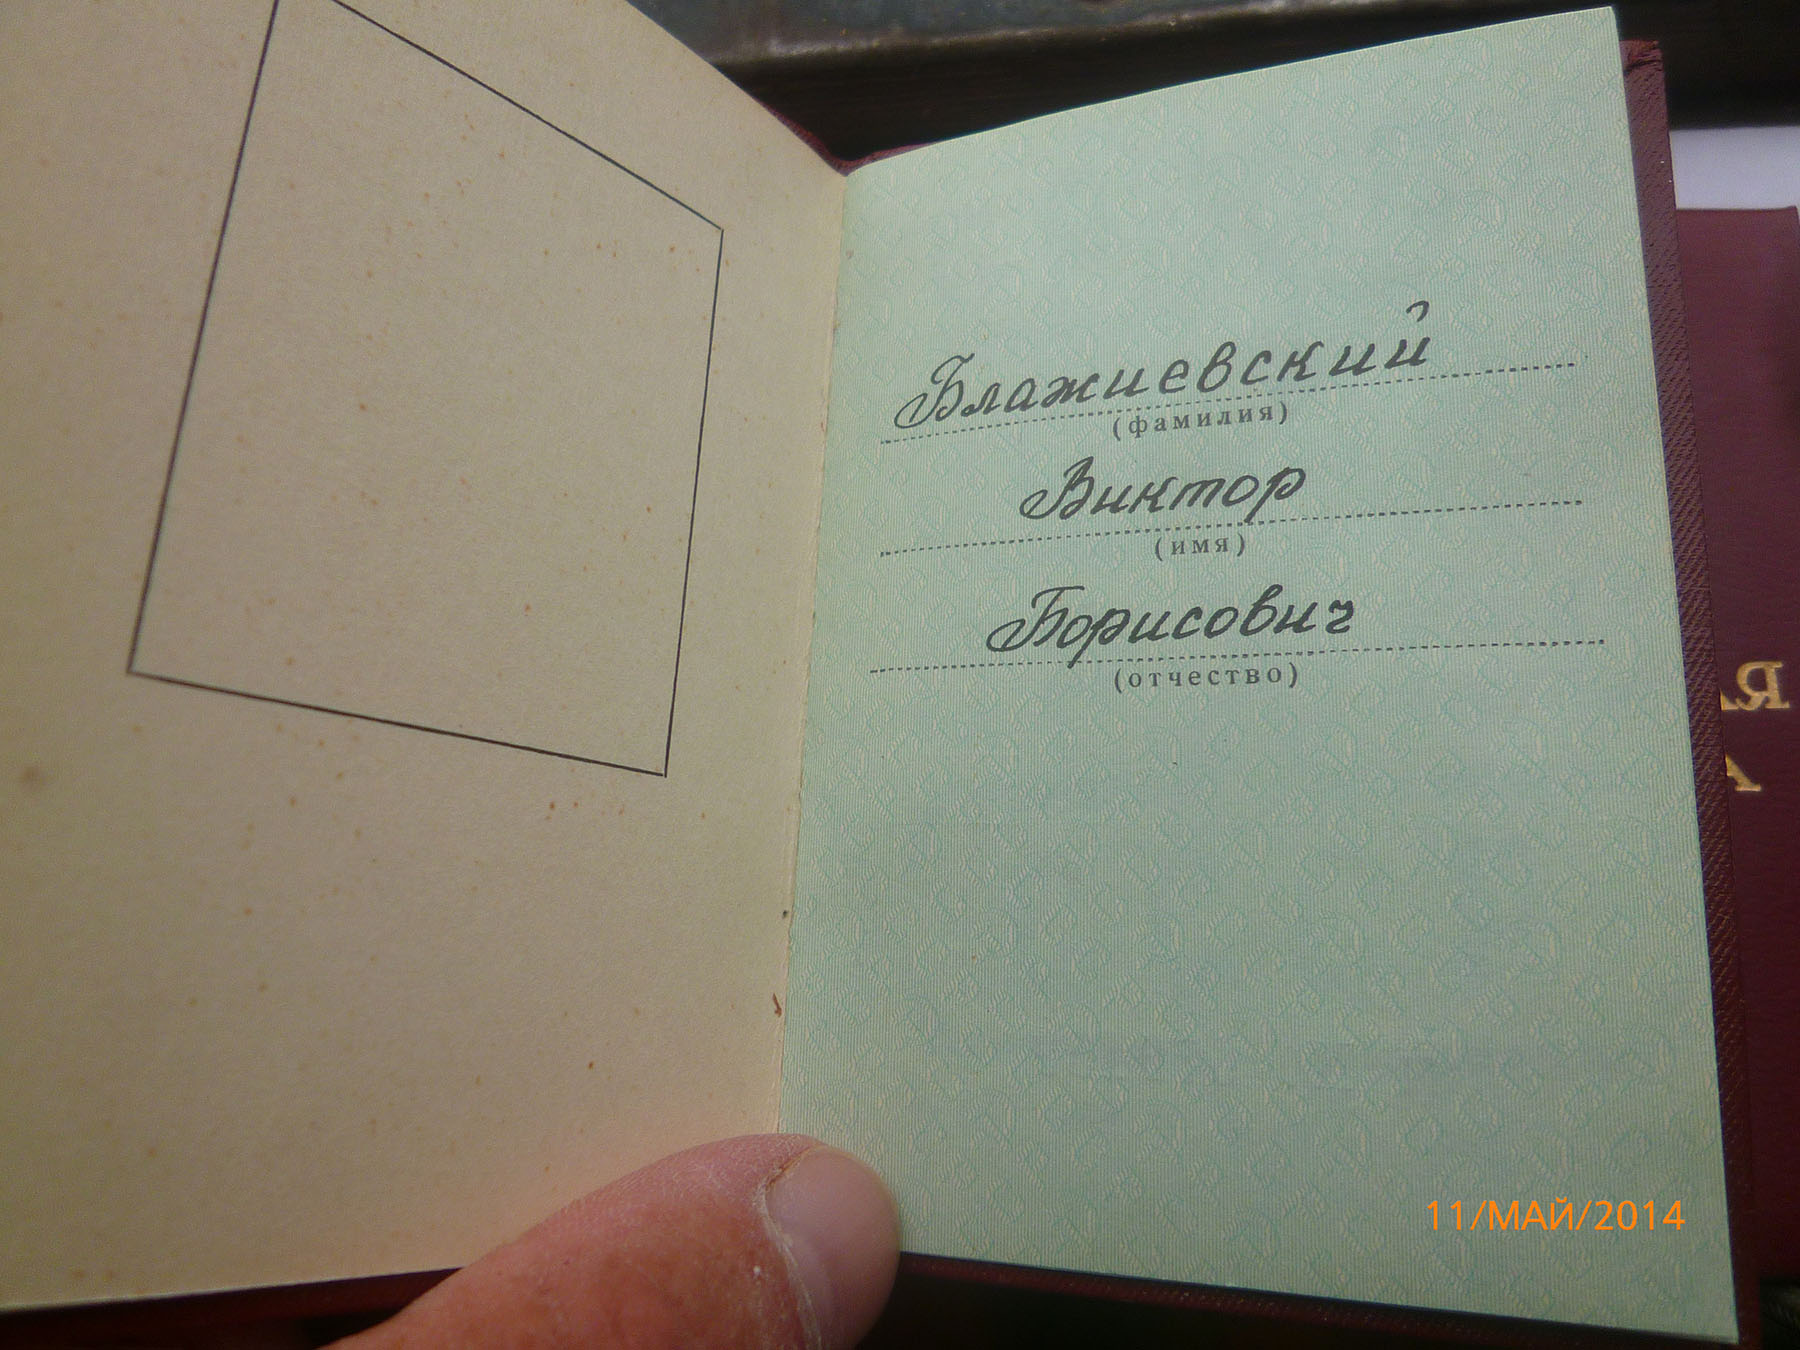 Блажиевский
(фамилия)
Виктор
(имя)
Борисович
(отчество)
11/МАЙ/2014